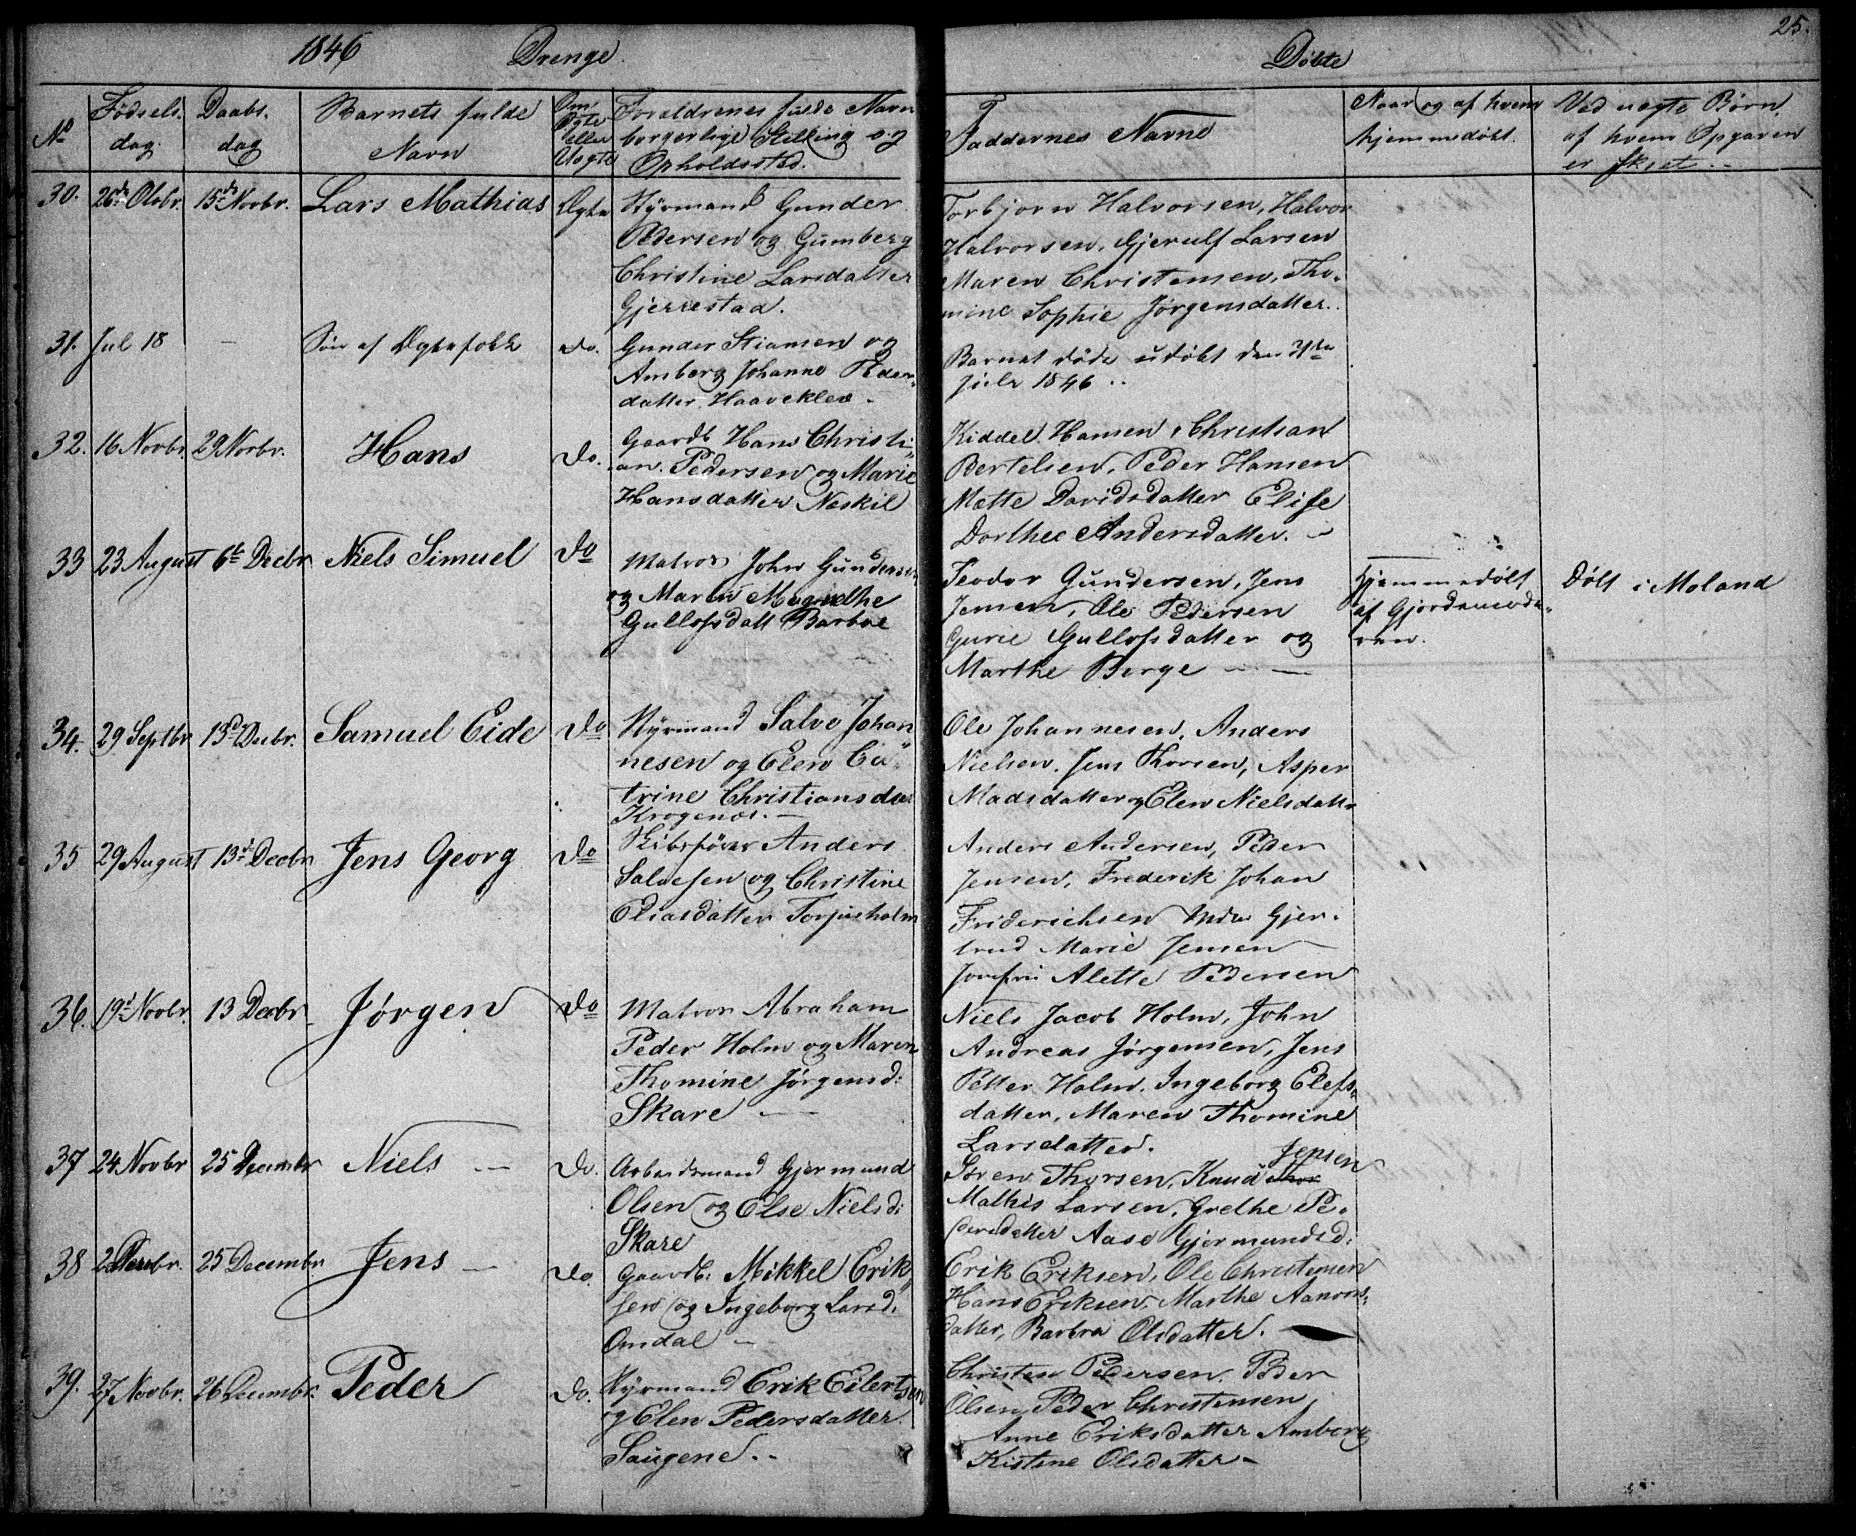 1846 Drenge.
Døbte
25.
No
Fødsels-
dag.
Daabs-
dag
Barnets fulde
Navn
Om
Ægte
eller
Uægte
Forældrenes fulde Navn
borgerlige Stilling og
Opholdssted.
Faddernes Navne
Naar og af hvem
hjemmedøbt.
Ved uægte Børn,
af hvem Opgaven
er skeet.
30. 26de Octbr. 15de Novbr. Lars Mathias Ægte Styrmand Gunder
Pedersen og Gumberg
Christine Larsdatter
Gjerrestad.
Torbjørn Halvorsen, Halvor
Halvorsen, Gjerulf Larsen
Maren Christensen, Tho-
mine Sophie Jørgensdatter.
31. Jul 18 — Søn af Ægtefolk do. Gunder Stiansen og
Amberg Johanne Peder-
datter Haaveklev.
Barnet døde udøbt den 31te
Juli 1846.
32. 16 Novbr. 29 Novbr. Hans Do. Gaardb. Hans Christi-
an Pedersen og Marie
Hansdatter Neskil
Kiddel Hansen, Christian
Bertelsen, Peder Hansen
Mette Davidsdatter Elise
Dorthee Andersdatter.
33 23 August 6te Decbr Niels Simuel Do Matros John Gundersen
og Maren
Gullofsdatt Barboe
Teodor Gundersen, Jens
Jensen, Ole Pedersen
Gurie Gullofsdatter og
Marthe Berge
Hjemmedøbt
af Gjordemode-
ren.
Døbt i Moland
34. 29 Septbr 13de Decbr. Samuel Eide Do Styrmand Salve Johan
nesen og Elen Ca-
trine Christiansdatter
Krogenes.
Ole Johannesen, Anders
Nielsen, Jens Thorsen, Asper
Madsdatter og Elen Nielsdatt.
35 29 August 13de Decbr Jens Georg Do Skibsfører Anders
Salvesen og Christine
Eliasdatter Torjusholm
Anders Andersen, Peder
Jensen, Frederik Johan
Friderichsen Mda Gjer-
trud Marie Jensen
Jomfru Alette Pedersen
36. 19de Novbr. 13 Decbr Jørgen Do Matros Abraham
Peder Holm og Maren
Thomine Jørgensd:
Skare
Niels Jacob Holm, John
Andreas Jørgensen, Jens
Petter Holm. Ingeborg Elefs-
datter, Maren Thomine
Larsdatter.
37 24 Novbr 25 Decembr Niels Do. Arbeidsmand Gjermund
Olsen og Else Nielsd:
Skare
Jensen
Søren Thorsen, Knud
Mathis Larsen, Grethe Pe-
dersdatter Aase Gjermundsd:
38 2 Decbr. 25 Decembr Jens Do. Gaardb: Mikkel Erik-
sen og Ingeborg Larsd:
Omdal
Erik Eriksen, Ole Christensen
Hans Eriksen, Marthe Aanons-
datter, Barbra Olsdatter.
39. 27 Novbr. 26 Decembr. Peder Do. Styrmand Erik Eilertsen
og Elen Pedersdatter
Saugene.
Christen Pedersen, Peder
Olsen, Peder Christensen
Anne Eriksdatter Amberg
Kistine Olsdatter